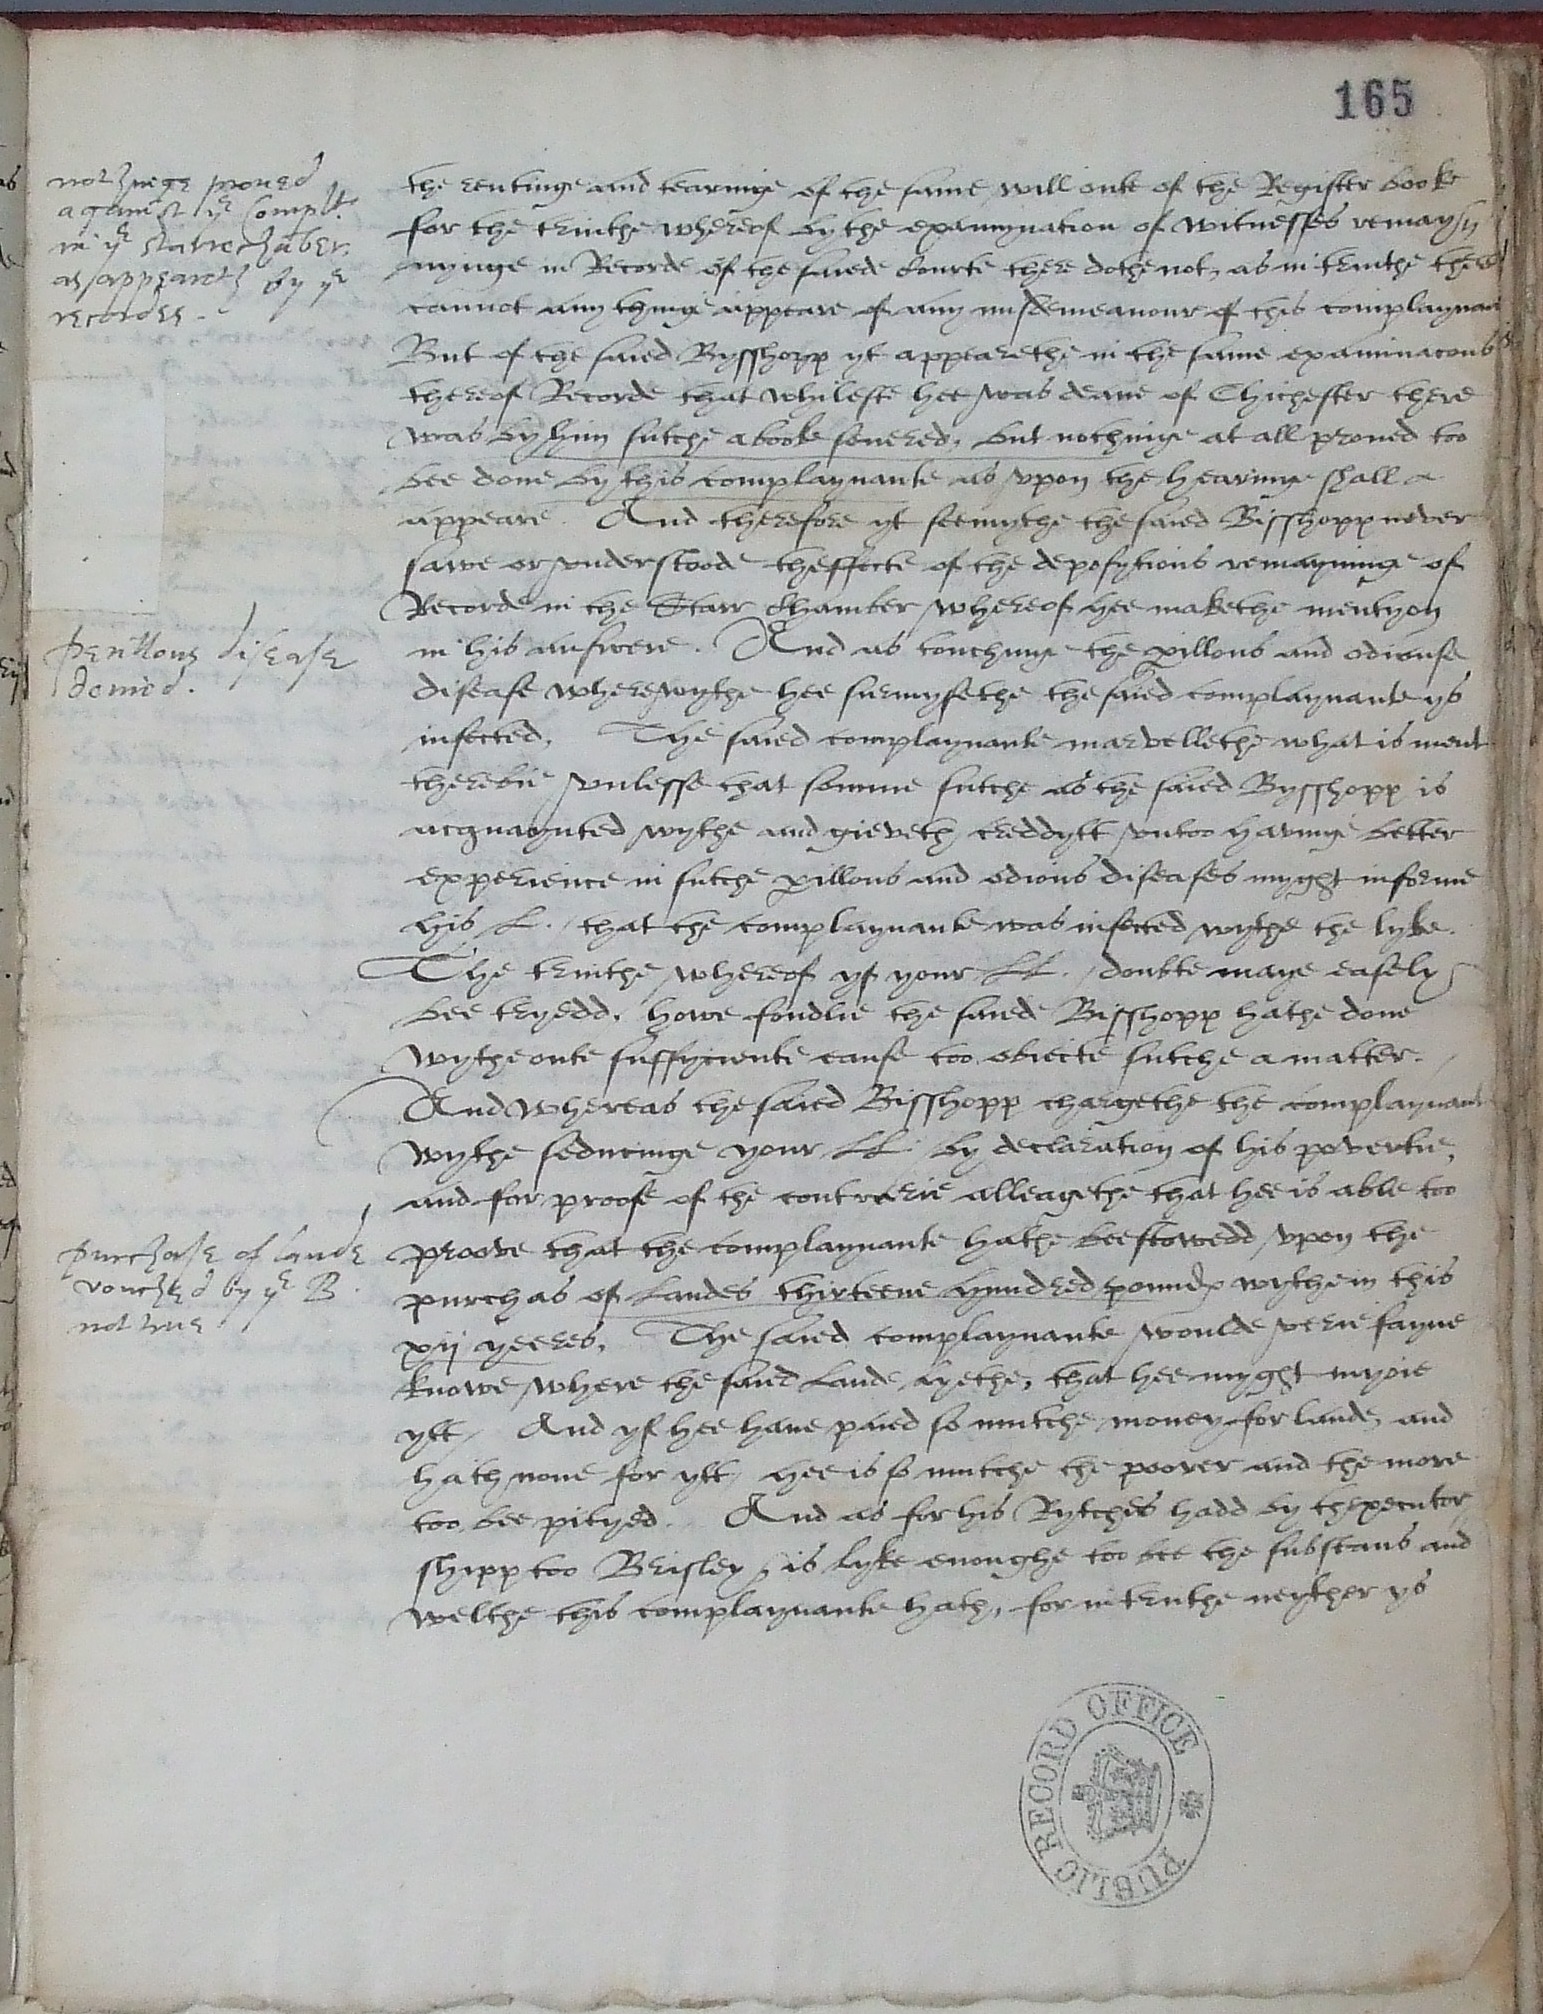 165
nothinge proved
against yᵉ Complt.
in yᵉ starrechaber.
as appeareth by yᵉ
recordes.
the rentinge and tearinge of the same will oute of the Register booke
for the truithe whereof by the examynation of witnesses remay
nynge in Recorde of the saiede Courte there dothe not, as in truithe there
cannot any thinge appeare of any misdemeanour of this complaynan
But of the saied Bysshopp yt appearethe in the same examinacons
thereof Recorde that whileste hee was deane of Chichester there
was by hym sutche a booke severed, but nothinge at all proued too
bee done by this complaynante as vpon the hearinge shall
appeare. And therefore yt seemythe the saied Bisshopp never
sawe or vnderstoode theffecte of the depositions remayninge of
Recorde in the Starr Chamber whereof hee makethe mentyon
in his answere. And as touchinge the perillous and odiouse
disease wherewythe hee surmysethe the saied complaynante ys
infected, The saied complaynante marvellethe what is ment
therebie vnlesse that somme sutche as the saied Bysshopp is
acquaynted wythe and gieveth creddytt vntoo havinge better
experience in sutche perillous and odious diseases myght informe
his L. that the complaynante was infected wythe the lyke.
The truithe whereof yf your LL. doubte maye easely
bee tryedd, howe fondlie the saiede Bisshopp hathe done
wytheoute suffyciente cause too obiecte sutche a matter.
perillous disease
denied.
And whereas the saied Bisshopp chargethe the complaynante
wythe seducinge your LL. by declaration of his povertie,
and for proofe of the contrerie alleagethe that hee is able too
proove that the complaynante hathe beestowedd vpon the
purchas of Landes thirteene hundred poundes wythein this
xij yeeres, The saied complaynante woulde verie fayne
knowe where the saied Lande lyethe, that hee myght inyoie
ytt, And yf hee have paied so mutche money for lande, and
hath none for ytt, hee is so mutche the poorer and the more
too bee pityed. And as for his Rytches hadd by thexecutor
shipp too Brisley, is lyke enoughe too bee the substans and
welthe this complaynante hath, for in truthe neyther ys
purchase of lande
vouched by yᵉ B.
not true
PUBLIC RECORD OFFICE